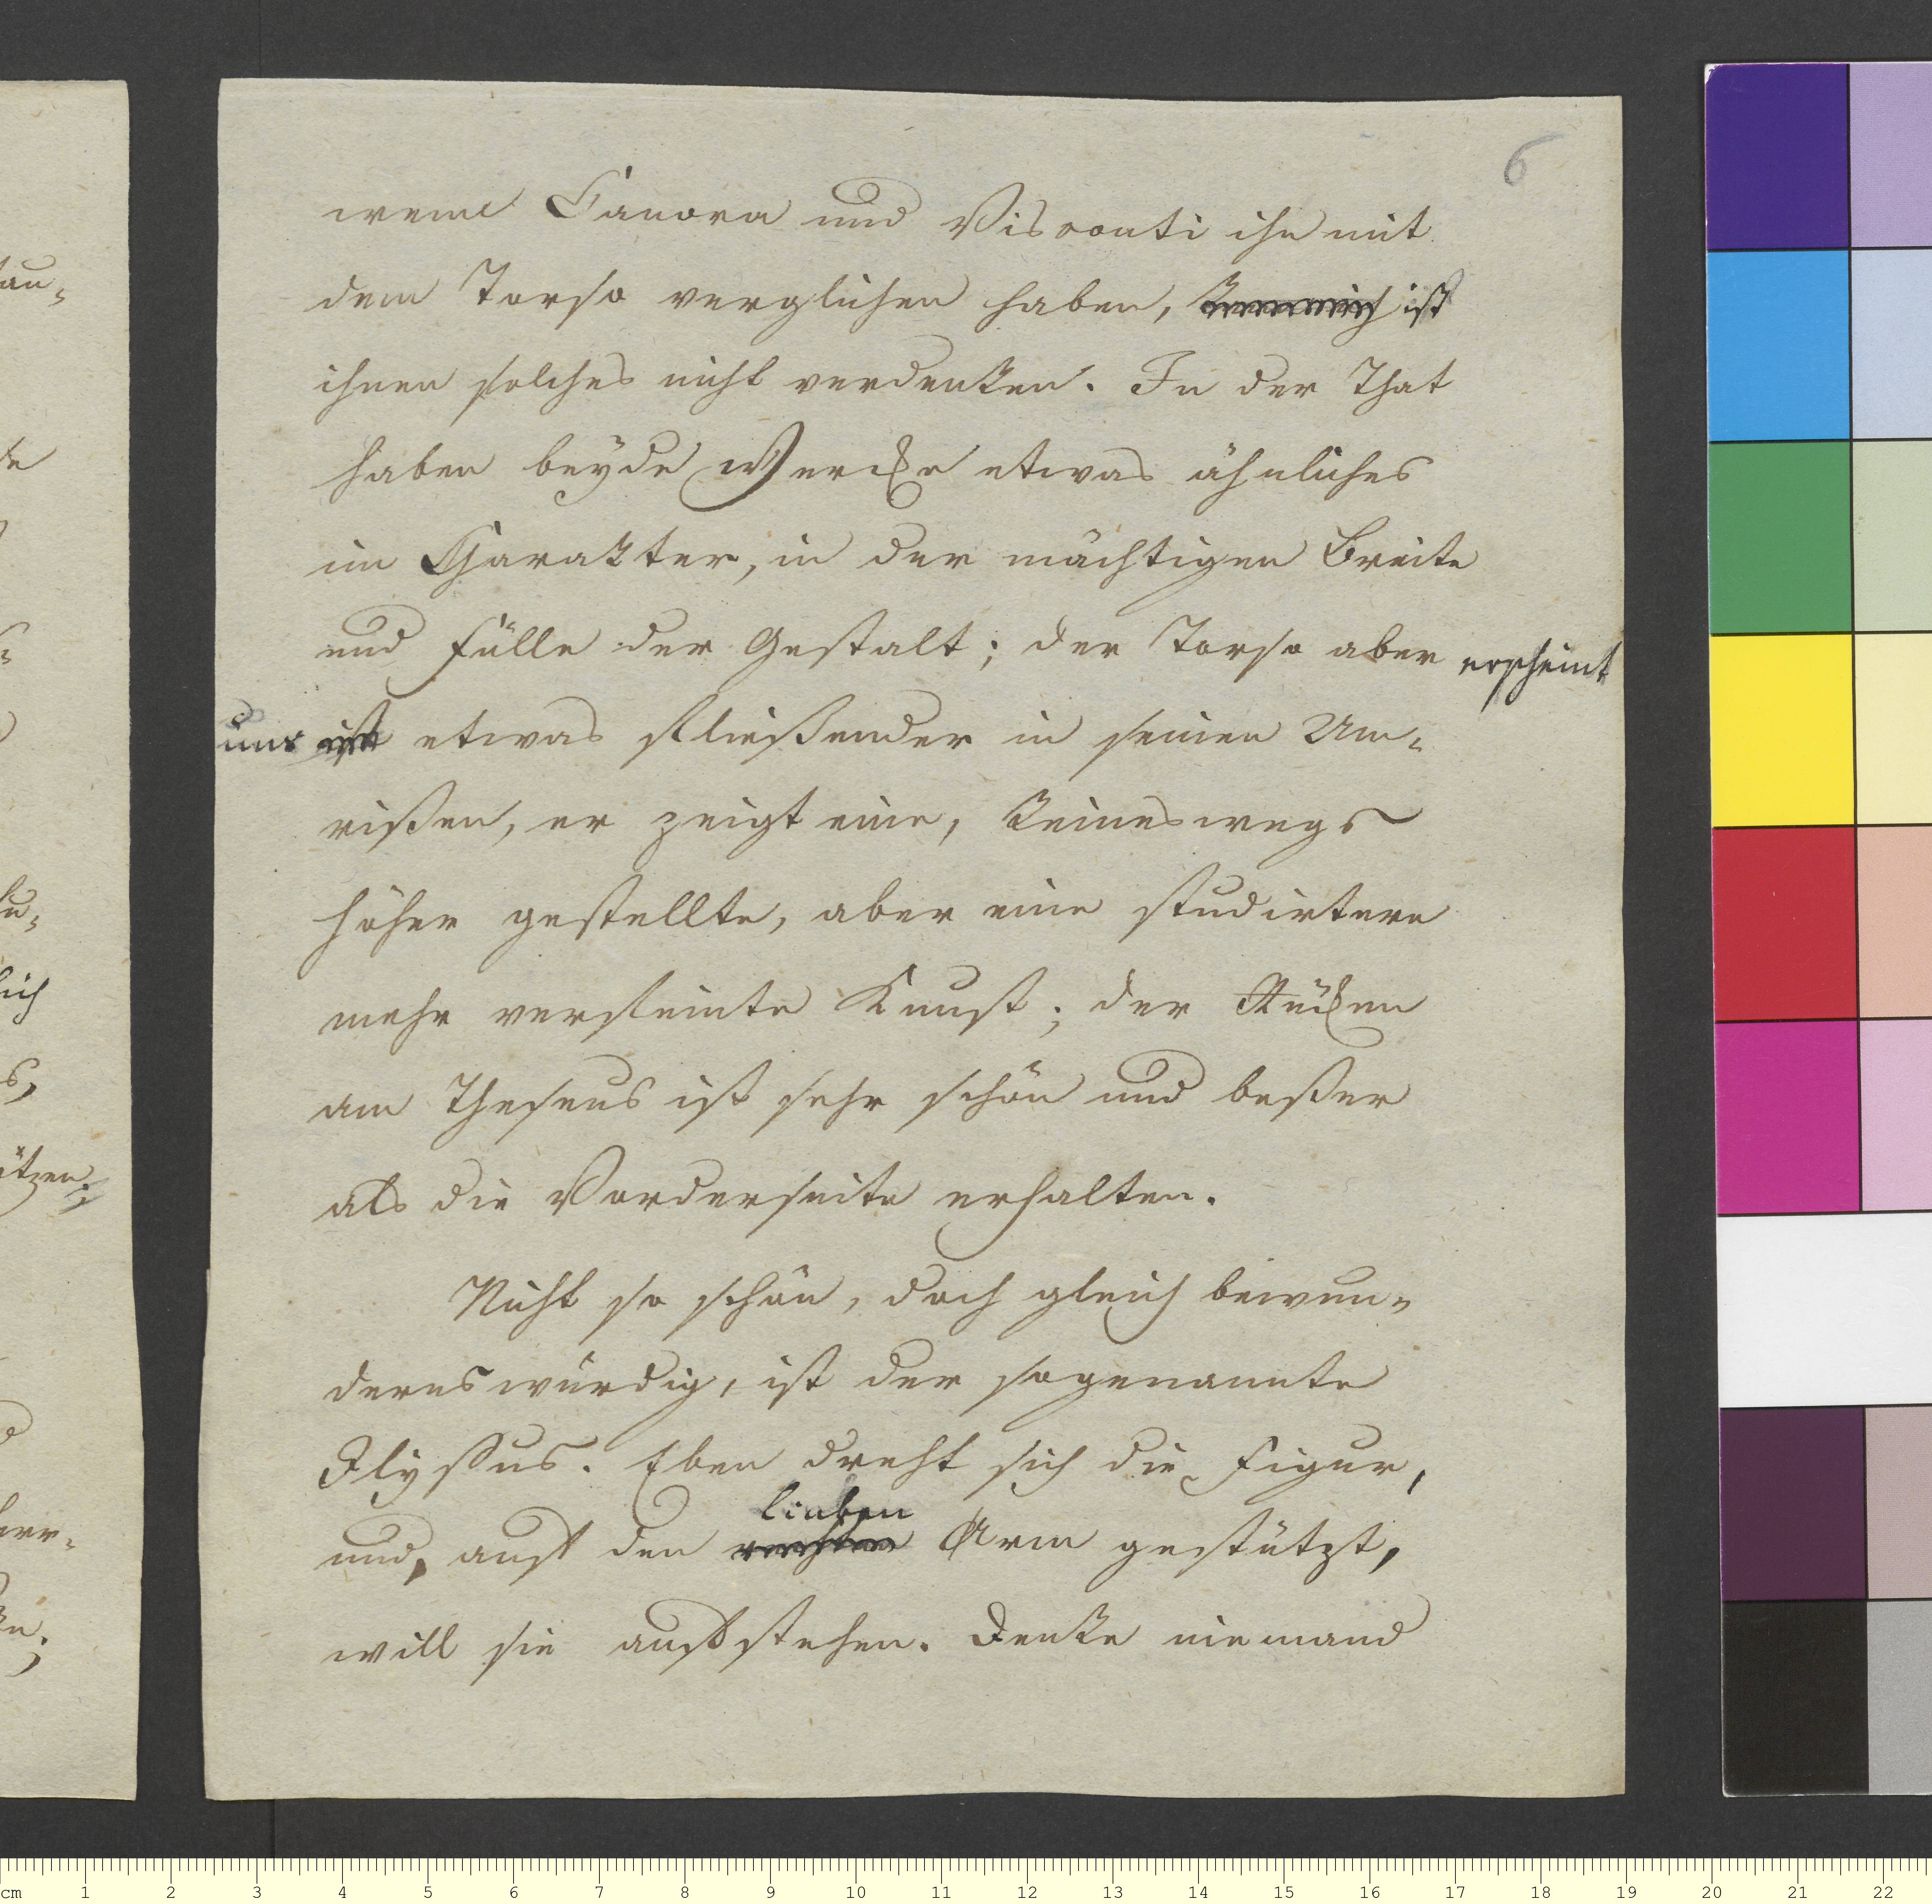 6
wenn Canova und Visconti ihn mit
dem Torso verglichen haben, ist
ihnen solches nicht verdenken. In der That
haben beyde Wercke etwas ähnliches
im Charakter, in der mächtigen Breite
und Fülle der Gestalt; der Torso aber erscheint
uns ist etwas fließender in seinen Um-
rißen, er zeigt eine, keineswegs
höher gestellte, aber eine studirtere
mehr verfeinte Kunst; der Rücken
am Theseus ist sehr schön und beßer
als die Vorderseite erhalten.
Nicht so schön, doch gleich bewun-
dernswürdig, ist der sogenannte
Ilyssus. Eben dreht sich die Figur,
linken
und, auf den rechten Arm gestützt,
will sie aufstehen. Denke niemand